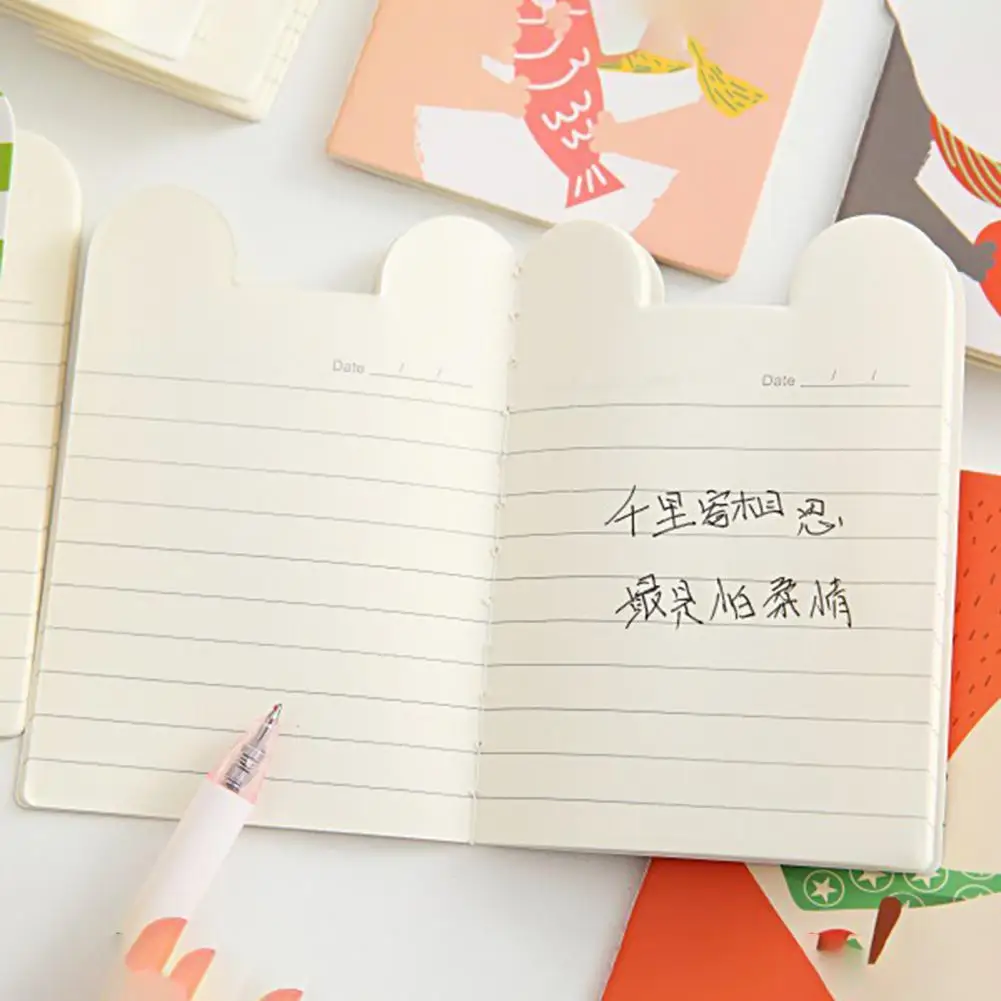 Date / /
Date / /
千里客相思
最是怕柔情